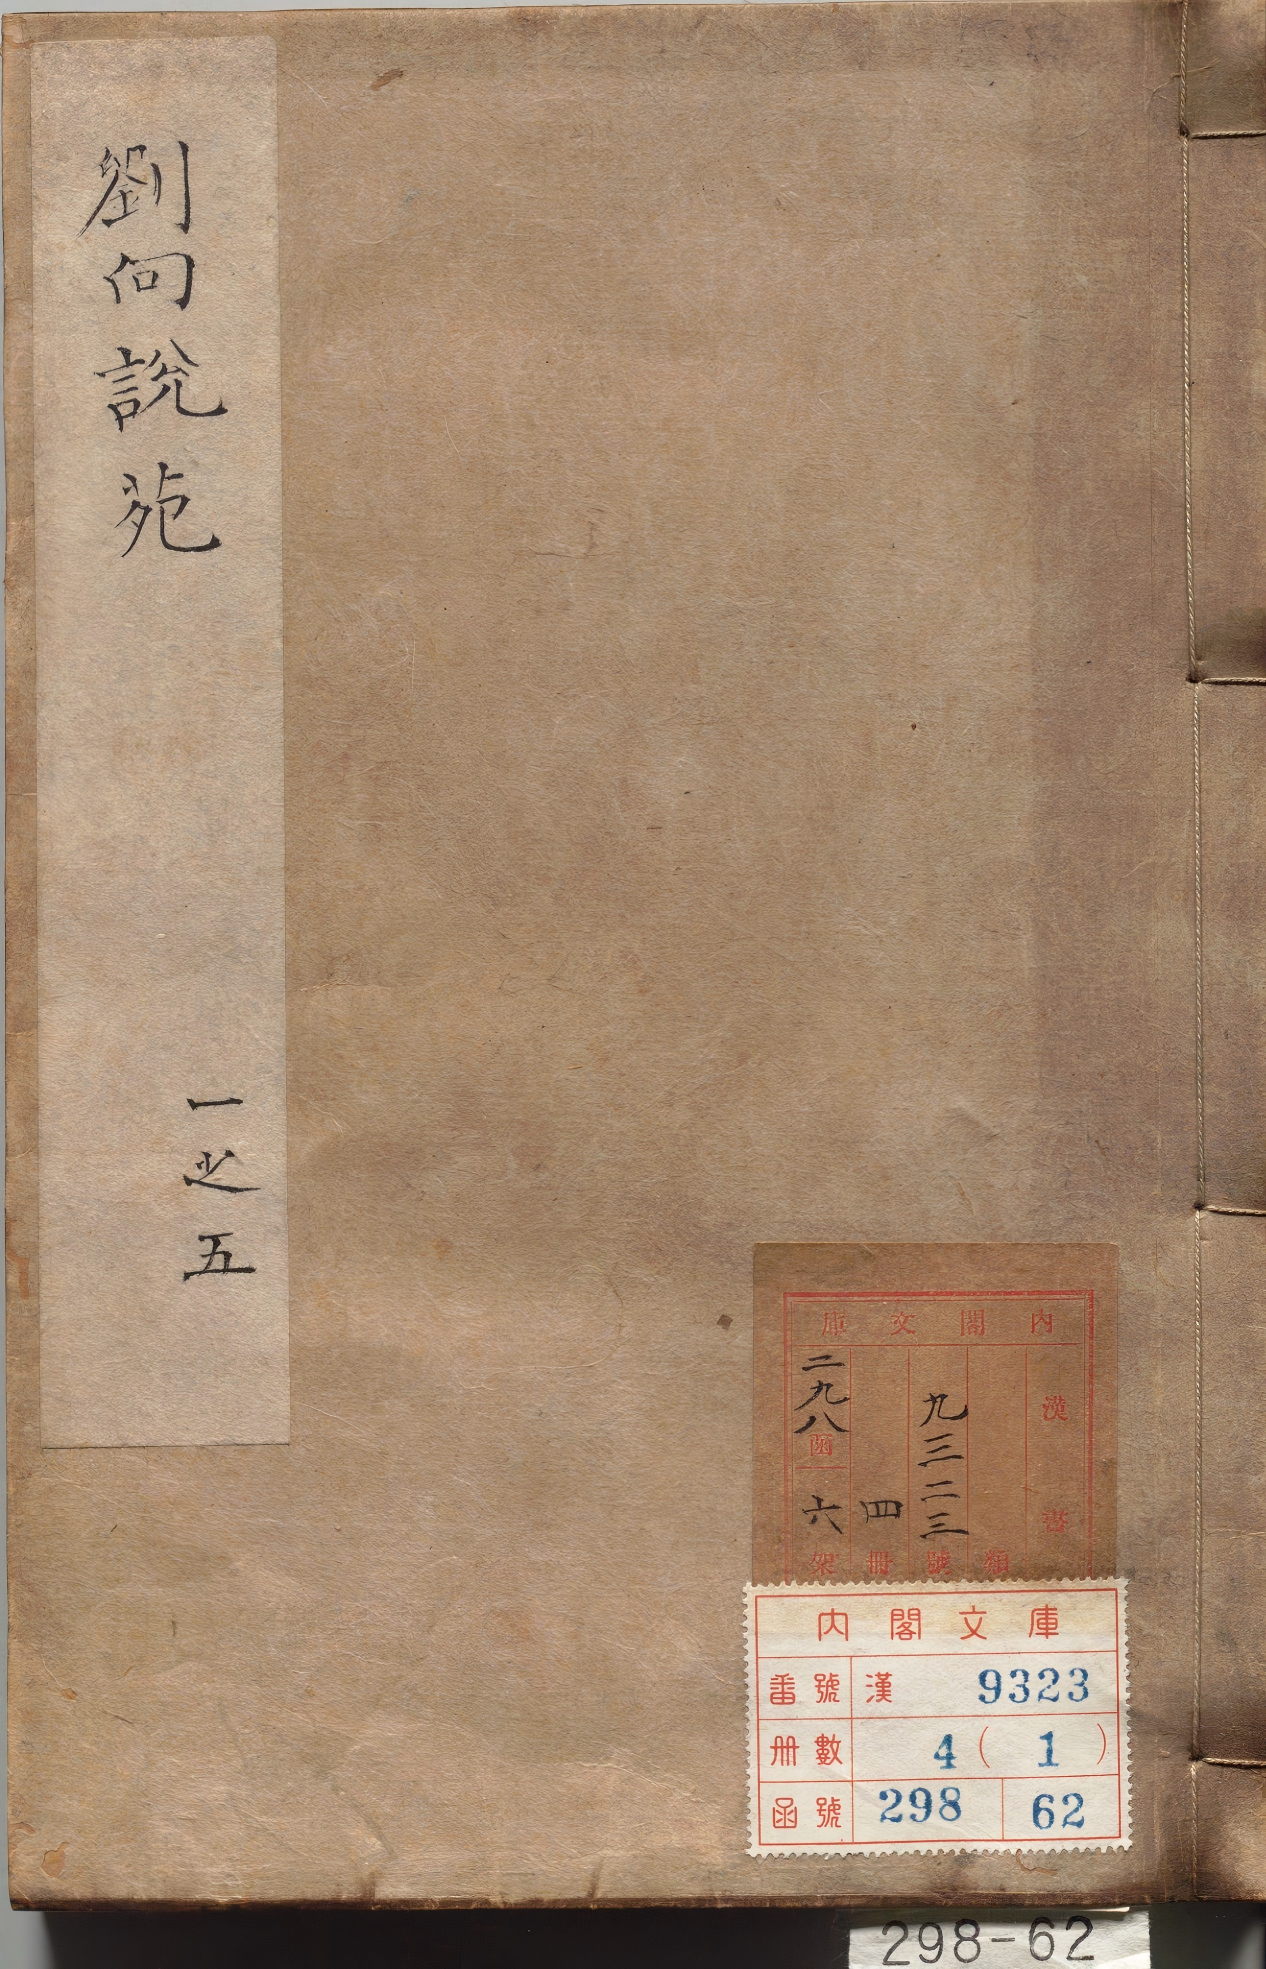 劉向說苑
一之五
内閣文庫
漢書
類
九三二三號
四冊
二九八函六架
内閣文庫
番號 漢 9323
冊數 4(1)
函號 298 62
298-62